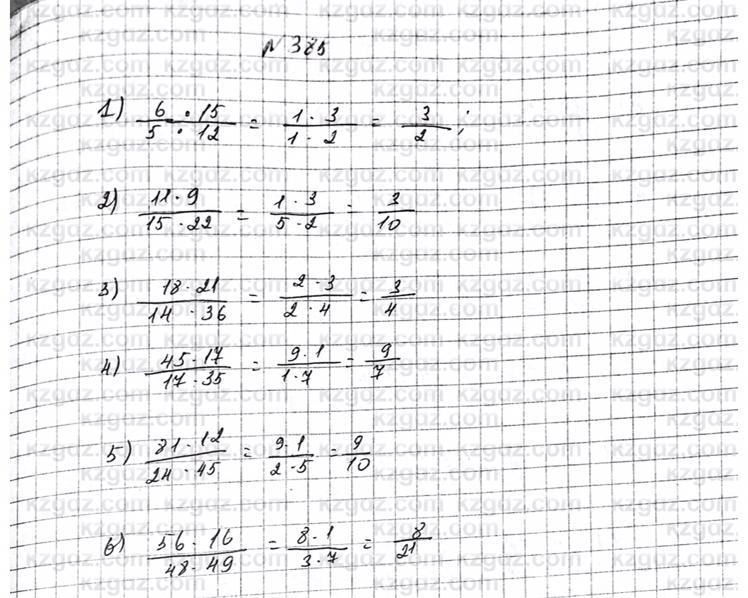 № 375
1) 6 · 15 / 5 · 12 = 1 · 3 / 1 · 2 = 3 / 2 ;
2) 11 · 9 / 15 · 22 = 1 · 3 / 5 · 2 = 3 / 10
3) 18 · 21 / 14 · 36 = 2 · 3 / 2 · 4 = 3 / 4
4) 45 · 17 / 17 · 35 = 9 · 1 / 1 · 7 = 9 / 7
5) 81 · 12 / 24 · 45 = 9 · 1 / 2 · 5 = 9 / 10
6) 56 · 16 / 48 · 49 = 8 · 1 / 3 · 7 = 8 / 21